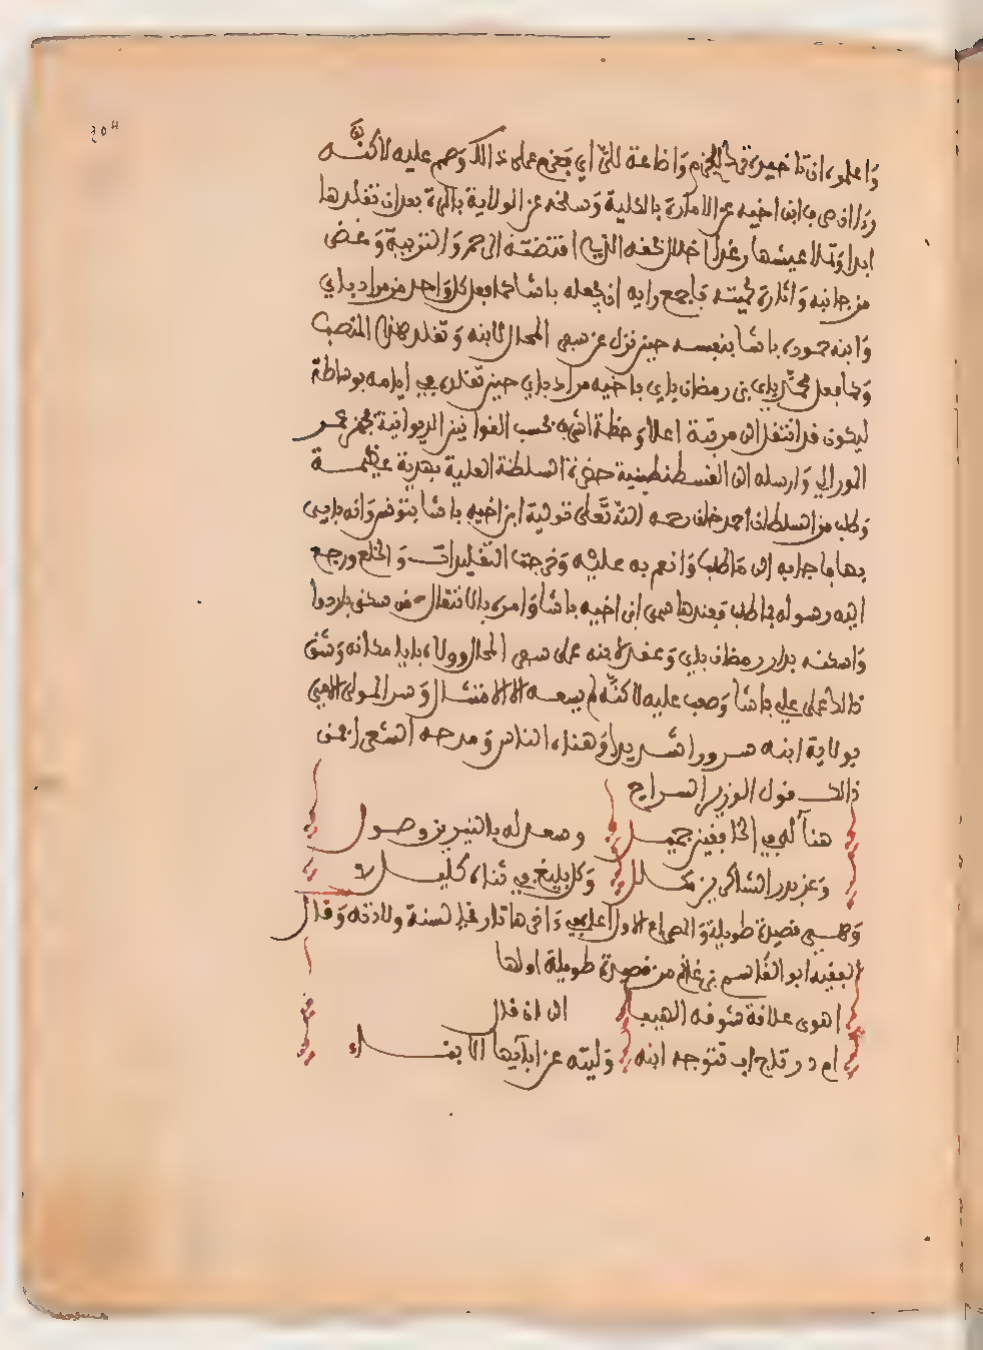 واعلموه ان تاخيره واضاعة للثاى فعزم على ذالك وصمم عليه لاكنه
وراى ان صرف ابن اخيه عن الامارة بالكلية وسلخه عن الولاية بالمرة بعد ان تقلدها
ابدا وتلا عيشها وغذا خلال شغفه الذى اقتضته الرحم والتربية وغض
من جانبه واثارة لحميته فاجمع رايه ان يجعله باشا كما فعل كل واحد من مراد باى
وابنه حموده باشا بنفسه حين نزل عن سفر المحال لابنه وتقلد هذا المنصب
وكما فعل محمد باى بن رمضان باى باخيه مراد باى حين تقلده فى ايامه بوساطة
ليكون قد انتقل الى مرتبة اعلا وخطة اشرف بحسب القوانين الديوانية فجهز عمر
المورالى وارسله الى القسطنطينية حضرة السلطنة العلية بهدية عظيمــة
وطلب من السلطان احمد خان رحمه الله تعلى تولية ابن اخيه باشا بتونس وانه باى
بها فاجابه الى ما طلب وانعم به عليه وخرجت التقليدات والخلع ورجع
اليه رسوله بما طلب فعندها سمى ابن اخيه باشا وامره بالانتقال من سكنى باردوا
واسكنه بدار رمضان باى وعقد لابنه على سفر المحال وولاه بايا مكانه وشق
ذالك على على باشا وصعب عليه لاكنه لم يسعه الا الامتثال وسر المولى الامير
بولاية ابنه سرورا شديدا وهناه الناس ومدحه الشعرا فمن
ذالك قول الوزير السراج
هناء له فى الخافقين جميــل وسعد له بالنيرين وصـول
وعز بدر الشاكرين مكلل وكل بليغ فى ثناه كليــل
وهــى قصيدة طويلة والمصراع الاول اعلى وافرها تاريخا لسنة ولادته وقال
الفقيه ابو القاسم بن غانم من قصيدة طويلة اولها
اهوى علاقة شوقه الهيفا الى ان قال
ام در تاج اب تتوجه ابنه وليته عن ابايها الابنــاء